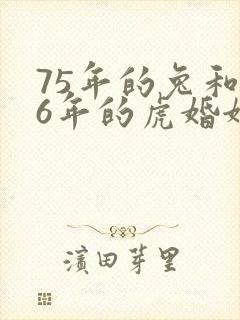 75年的兔和
6年的虎婚姻
濱田芽里